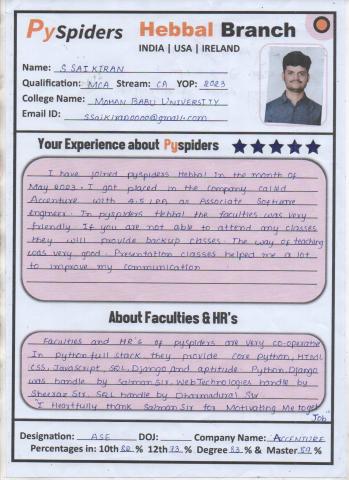 PySpiders Hebbal Branch
INDIA | USA | IRELAND
Name: S SAI KIRAN
Qualification: MCA Stream: CA YOP: 2023
College Name: MOHAN BABU UNIVERSITY
Email ID: SSaikiran0000@gmail.com
Your Experience about Pyspiders
I have joined pyspiders Hebbal in the month of
May 2023. I got placed in the company called
Accenture with 4.5 LPA as Associate Software
Engineer. In pyspiders Hebbal the faculties was very
friendly. If you are not able to attend any classes
they will provide backup classes. The way of teaching
was very good. Presentation classes helped me a lot
to improve my communication
About Faculties & HR's
Faculties and HR's of pyspiders are very co-operative
In python full stack they provide core python, HTML
CSS, Javascript, SQL, Django and aptitude. Python, Django
was handle by Salman Sir. Web Technologies handle by
Sir. SQL handle by Dharmadurai Sir
"I Heartfully thank Salman Sir for Motivating Me to get
Job"
Designation: ASE DOJ: Company Name: ACCENTURE
Percentages in: 10th % 12th 73 % Degree 83 % & Master %